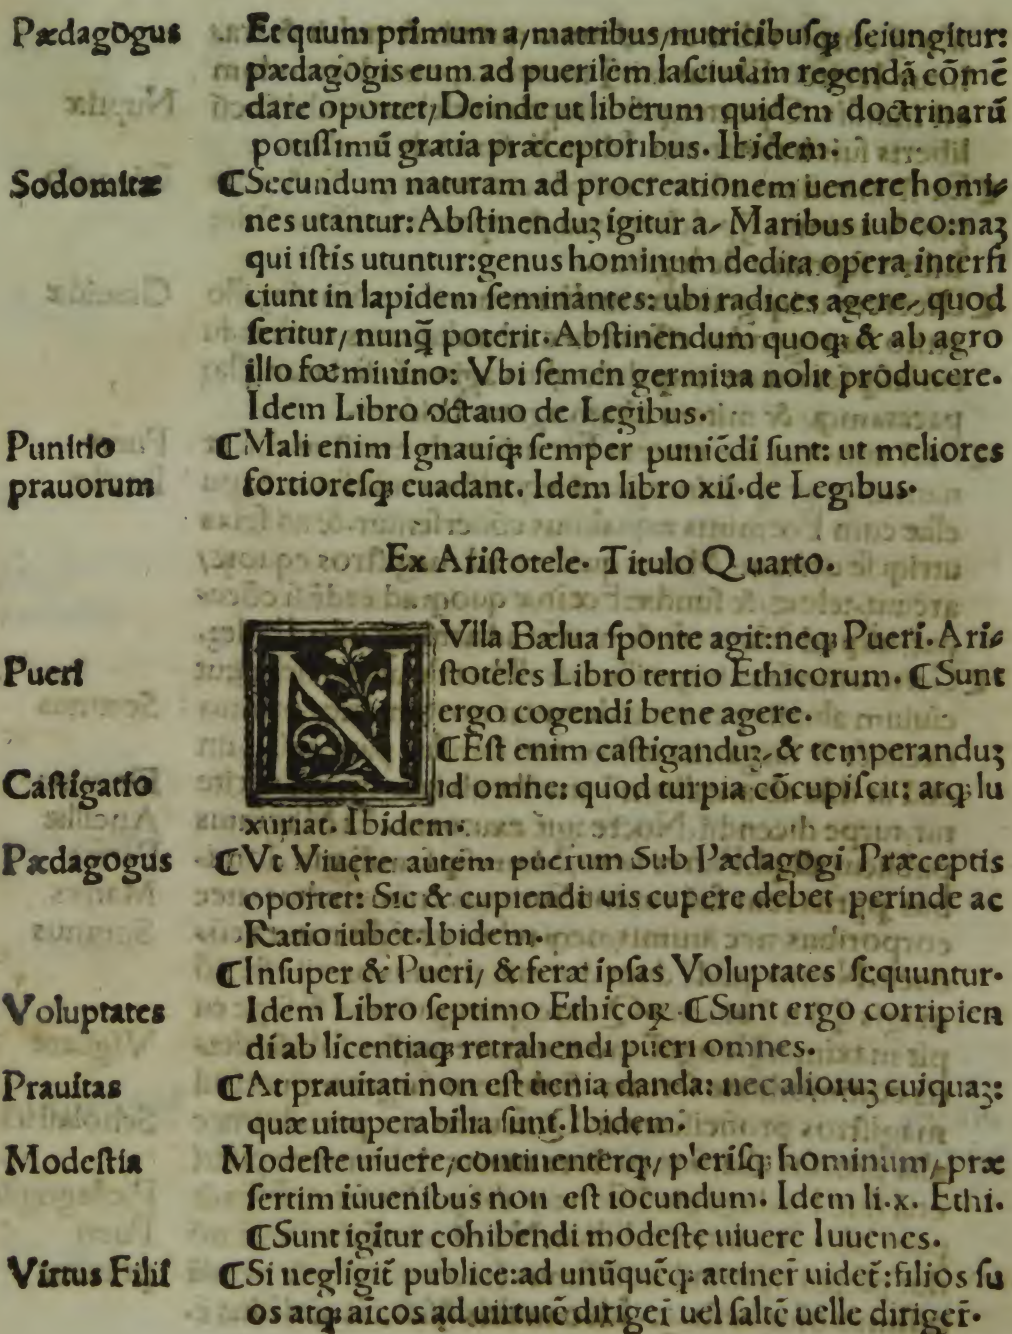 Pædagogus Et quum primum a/matribus/nutricibuſqꝫ ſeiungitur:
pædagogis eum ad puerilem laſciuiam regendã cõmẽ
dare oportet/Deinde ut liberum quidem doctrinarũ
potiſſimũ gratia præceptoribus. Ibidem.
Sodomitæ ⸿Secundum naturam ad procreationem uenere homi⸗
nes utantur: Abſtinenduꝫ igitur a⸝ Maribus iubeo:naꝫ
qui iſtis utuntur:genus hominum dedita opera interfi
ciunt in lapidem ſeminantes: ubi radices agere⸝ quod
ſeritur/ nunq̃ poterit. Abſtinendum quoqꝫ & ab agro
illo fœminino: Vbi ſemen germina nolit producere.
Idem Libro octauo de Legibus.
Punitio ⸿Mali enim Ignauiqꝫ ſemper puniẽdi ſunt: ut meliores
prauorum fortioreſqꝫ euadant. Idem libro xii.de Legibus.
Ex Ariſtotele. Titulo Quarto.
NVlla Bælua ſponte agit:neqꝫ Pueri. Ari⸗
Pueri ſtoteles Libro tertio Ethicorum. ⸿Sunt
ergo cogendi bene agere.
⸿Eſt enim caſtiganduꝫ⸝ & temperanduꝫ
Caſtigatio id omne: quod turpia cõcupiſcit: atqꝫ lu
xuriat. Ibidem.
Pædagogus ⸿Vt Viuere autem puerum Sub Pædagogi Præceptis
oportet: Sic & cupiendi uis cupere debet perinde ac
Ratio iubet.Ibidem.
⸿Inſuper & Pueri/ & feræ ipſas Voluptates ſequuntur.
Voluptates Idem Libro ſeptimo Ethicoꝝ. ⸿Sunt ergo corripien
di ab licentiaqꝫ retrahendi pueri omnes.
Prauitas ⸿At prauitati non eſt uenia danda: nec alioruꝫ cuiquaꝫ:
quæ uituperabilia ſunt.Ibidem.
Modeſtia Modeſte uiuere/continenterqꝫ/ p'eriſqꝫ hominum/ præ
ſertim iuuenibus non eſt iocundum. Idem li.x. Ethi.
⸿Sunt igitur cohibendi modeſte uiuere Iuuenes.
Virtus Filii ⸿Si negligit̃ publice:ad unũquẽqꝫ attiner̃ uidet̃:filios ſu
os atqꝫ aĩcos ad uirtutẽ diriger̃ uel ſaltẽ uelle diriger̃.